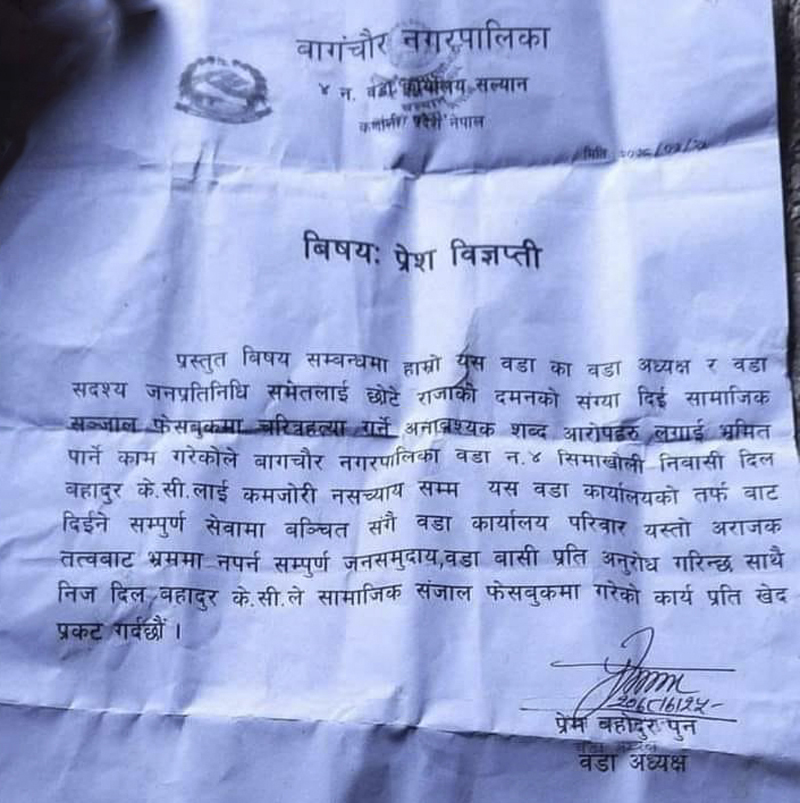 बागंचौर नगरपालिका
४ न. वडा कार्यालय सल्यान
कर्णाली प्रदेश नेपाल
मिति
बिषय: प्रेश विज्ञप्ती
प्रस्तुत बिषय सम्बन्धमा हाम्रो यस वडा का वडा अध्यक्ष र वडा
सदश्य जनप्रतिनिधि समेतलाई छोटे राजाको दमनको संग्या दिई सामाजिक
सञ्जाल फेसबुकमा चरित्रहत्या गर्ने अनावश्यक शब्द आरोपहरु लगाई भ्रमित
पार्ने काम गरेकोले बागचौर नगरपालिका वडा न.४ सिमाखोली निवासी दिल
बहादुर के.सी.लाई कमजोरी नसच्याय सम्म यस वडा कार्यालयको तर्फ बाट
दिईने सम्पुर्ण सेवामा बञ्चित संगै वडा कार्यालय परिवार यस्तो अराजक
तत्वबाट भ्रममा नपर्न सम्पुर्ण जनसमुदाय,वडा बासी प्रति अनुरोध गरिन्छ साथै
निज दिल बहादुर के.सी.ले सामाजिक संजाल फेसबुकमा गरेको कार्य प्रति खेद
प्रकट गर्दछौं ।
प्रेम बहादुर पुन
वडा अध्यक्ष